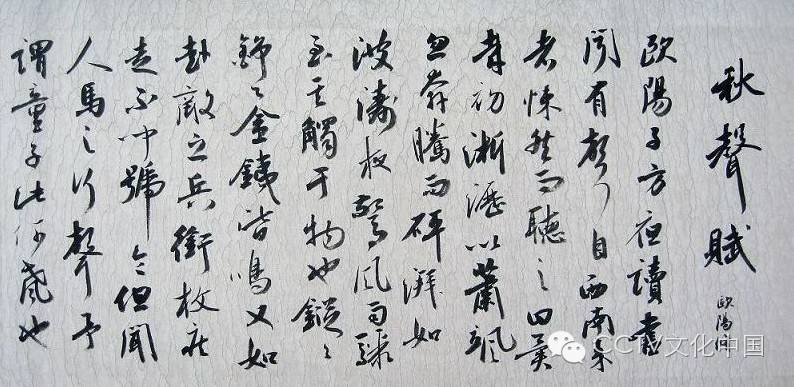 秋聲賦
歐陽修
歐陽子方夜讀書
聞有聲自西南來
者悚然而聽之曰異
哉初淅瀝以蕭颯
忽奔騰而砰湃如
波濤夜驚風雨驟
至其觸于物也鏦〻
錚〻金鐵皆鳴又如
赴敵之兵銜枚疾
走不聞號令但聞
人馬之行聲予
謂童子此何聲也
CCTV文化中国